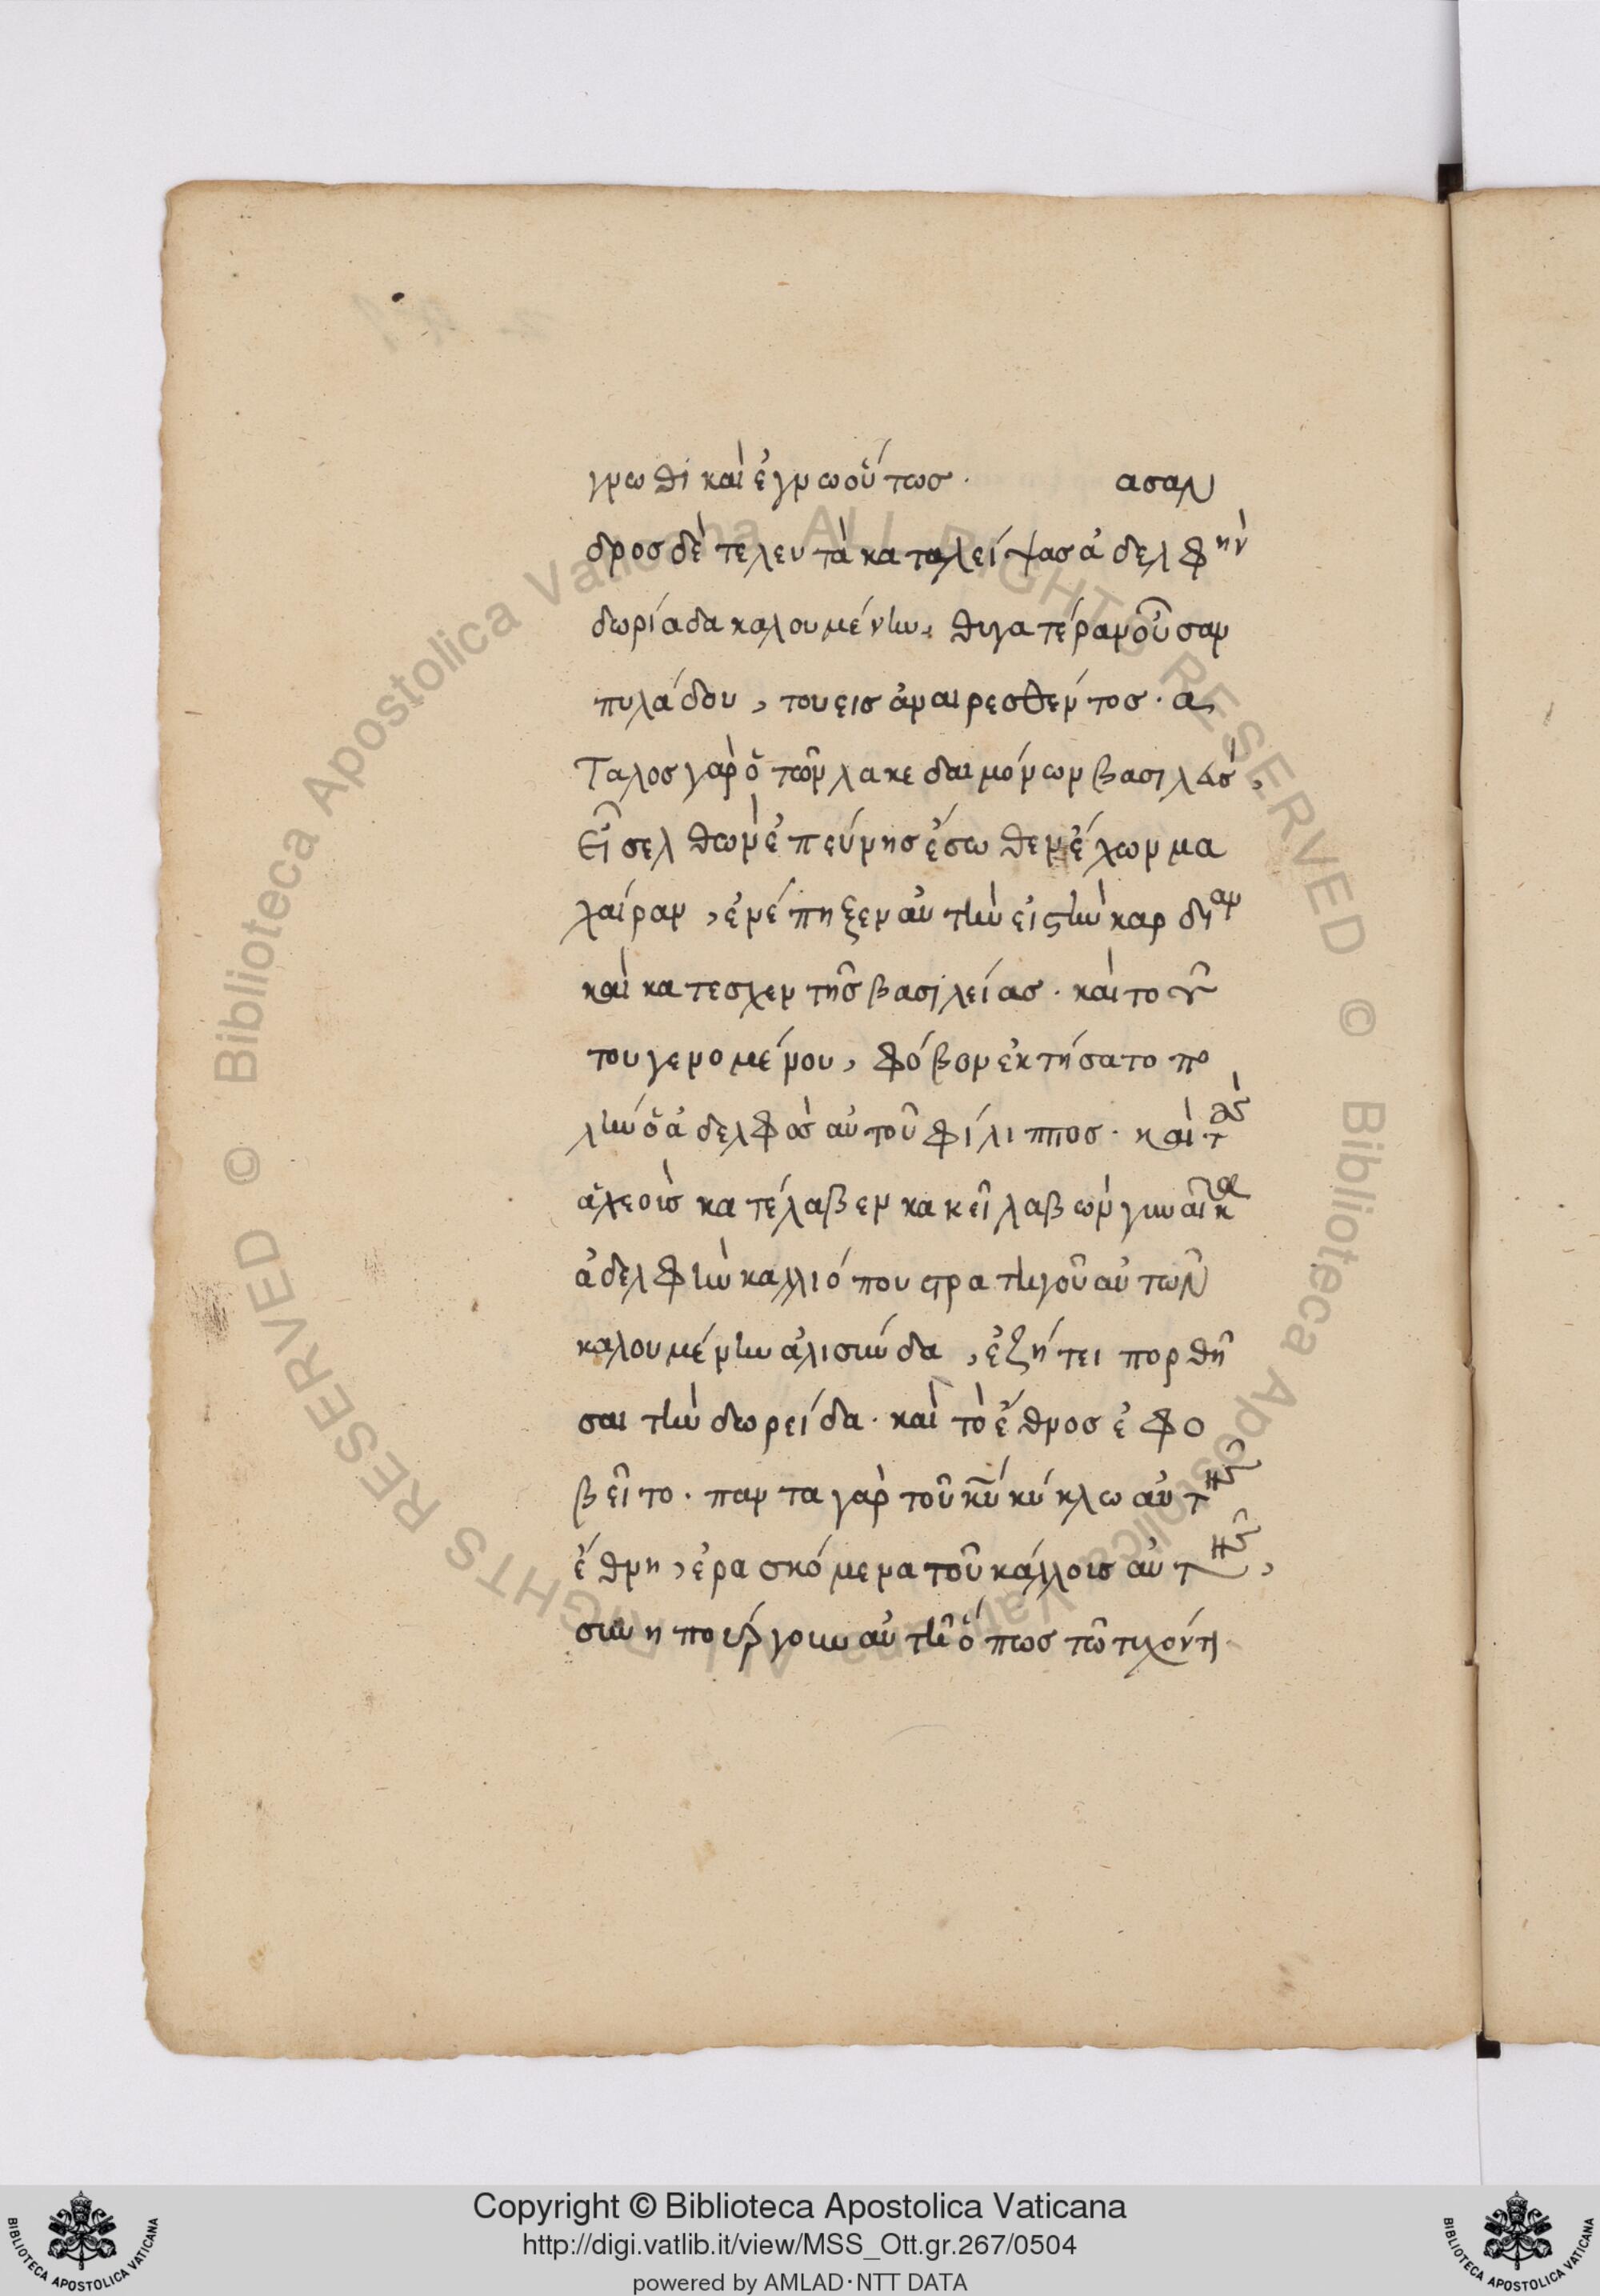 γνωθι καὶ ἐγνω οὕτωσ· ασαν
δροσ δὲ τελευτὰ καταλείψασ ἀδελφην
δωρίαδα καλουμένην, θυγατέραν οὖσαν
πυλάδου, του εισ ἀναιρεσθεντοσ· α
ταλοσ γαρ ὁ τῶν λακεδαιμόνων βασιλεὺσ,
Εἰσελθων ἐπεύνησ ἔσωθεν ἔχων μα
χαίραν, ἐνέπηξεν αὐτὴν εἰς τὴν καρδιαν
καὶ κατεσχεν τῆσ βασιλείασ· καὶ τού
του γενομένου, φόβον ἐκτήσατο πο
λὺν ὁ ἀδελφὸσ αὐτοῦ φίλιπποσ· καὶ τὰσ
ἄχεοὶσ κατέλαβεν κακεῖ λαβὼν γυναῖκα
ἀδελφὴν καλλιόπου στρατηγοῦ αὐτῶν
καλουμένην ἀλισύνδα, ἐζήτει πορθῆ
σαι τὴν δωρείδα· καὶ τὸ ἔθνοσ ἐφο
βεῖτο· παντα γαρ τοῦ κῦ κύκλω αὐτῆσ
ἔθνη, ἐρασκόμενα τοῦ κάλλοισ αὐτῆσ,
συνηπούργουν αὐτῆ ὅπωσ τῶ τυχόντι
Copyright © Biblioteca Apostolica Vaticana
http://digi.vatlib.it/view/MSS_Ott.gr.267/0504
powered by AMLAD·NTT DATA